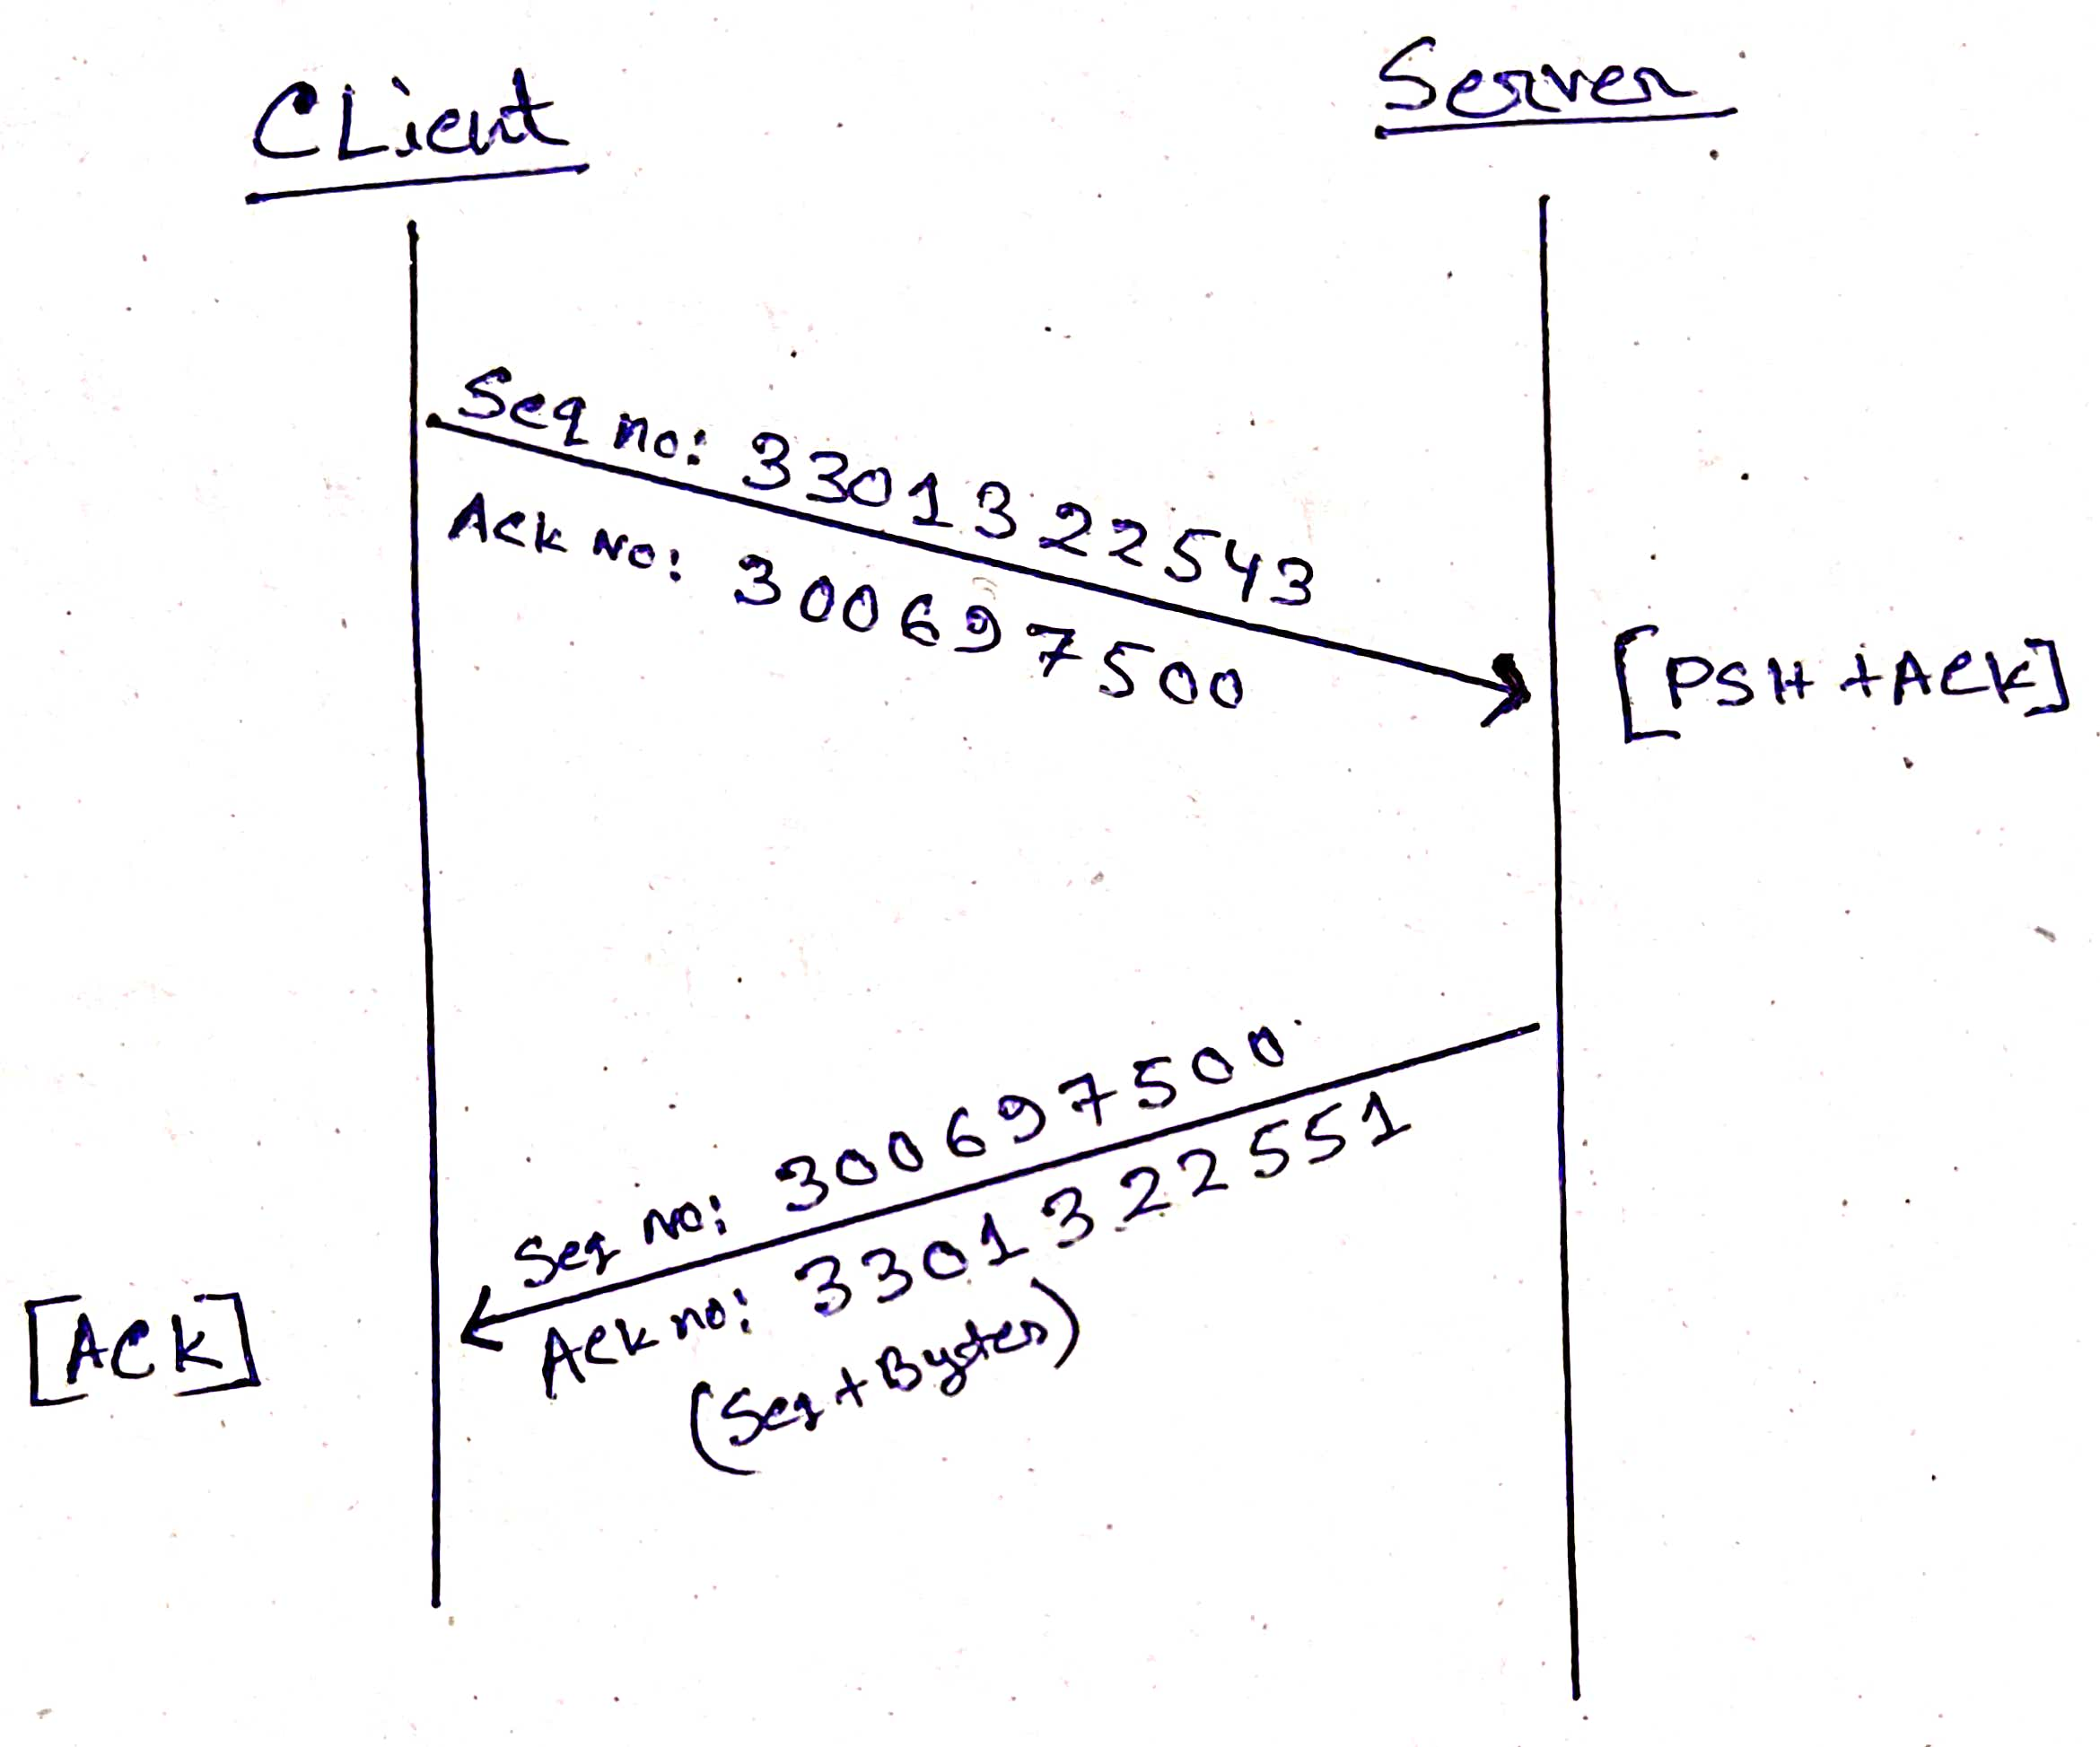 CLient
Server
Seq no: 3301322543
Ack No: 300697500
[PSH + ACK]
Seq No: 300697500
Ack no: 3301322551
(Seq + Bystes)
[ACK]